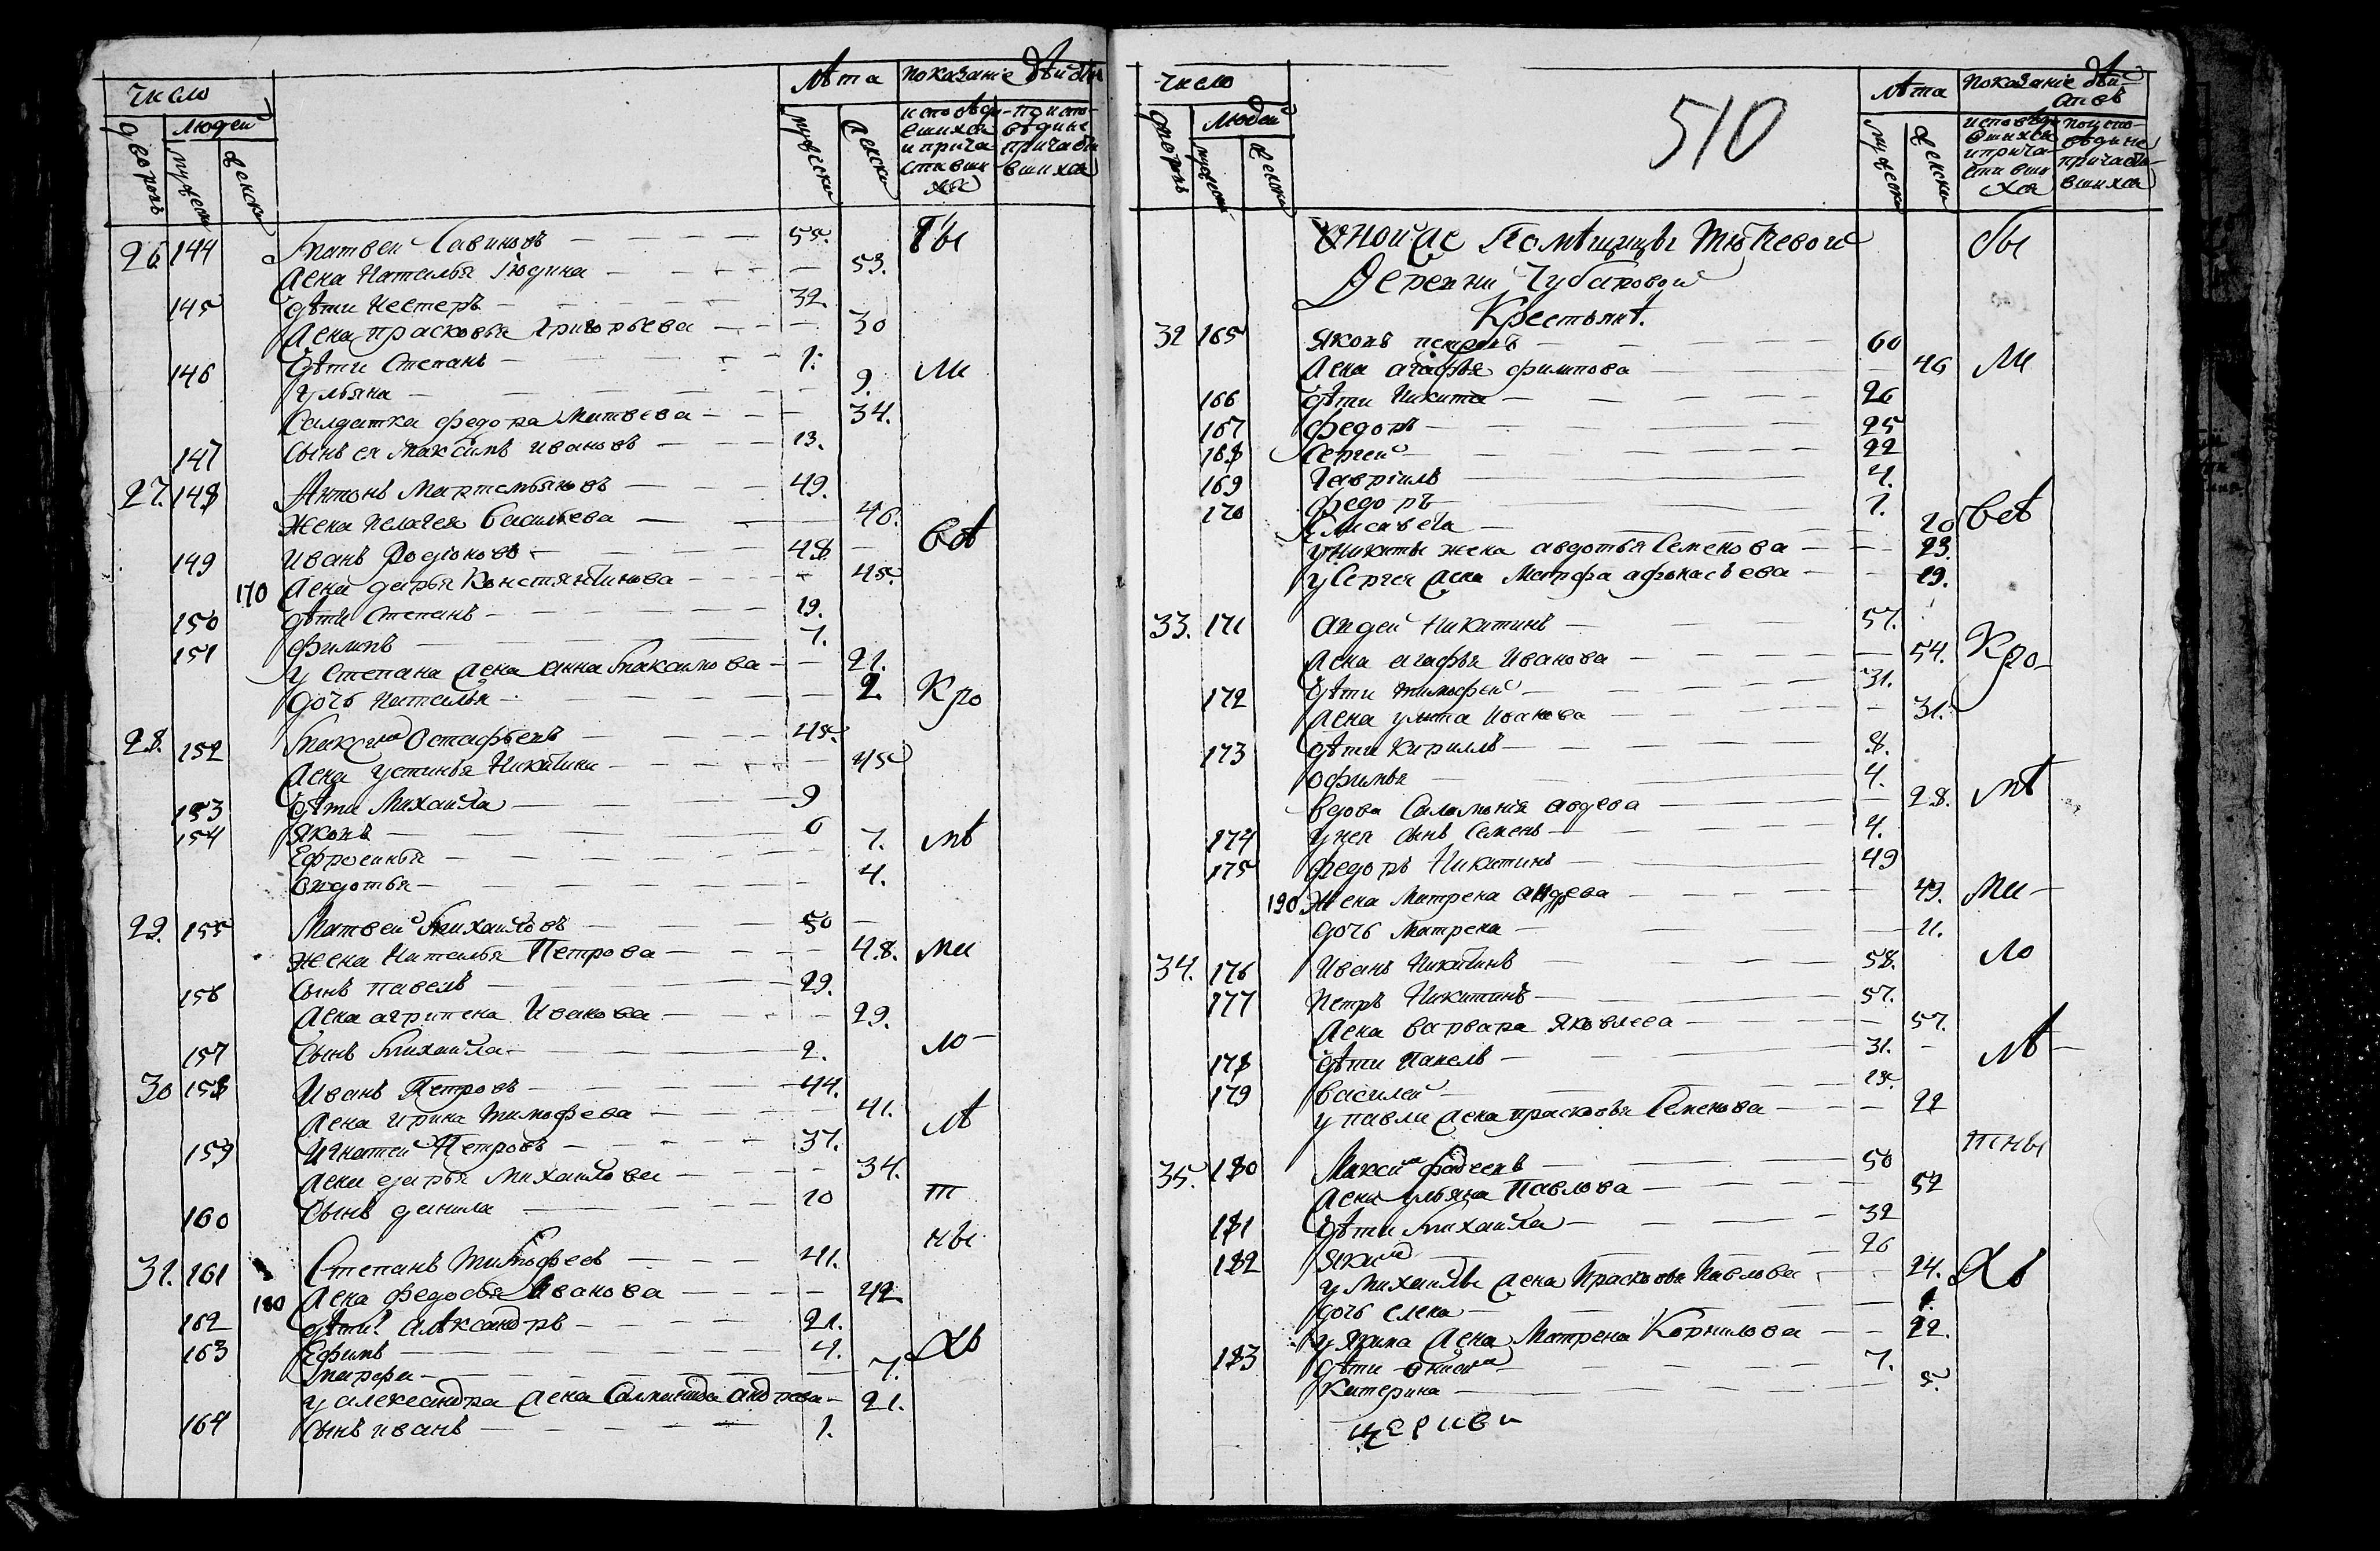 число
людей
дворовъ
мужеск
женска
лѣта
мужески
женски
показанiе дѣйств
исповѣда
вшихся
и прича
стивши
хся
по испо
вѣди не
причасти
вшихся
26. 144 Матвей Савиновъ 55. Т'вы
Жена Наталья Iюдина 53.
145 дѣти Нестеръ 32.
Жена прасковья Григорьева 30
146 Дѣти Степанъ 1.
Ульяна 9. ми
Салдатка федора Матвеева 34.
147 Сынъ ея Максимъ ивановъ 13.
27. 148 Антонъ Мартемьяновъ 49.
Жена пелагея Васильева 46.
149 Иванъ Родiоновъ 48 всѣ
170 Жена дарья Константинова 45.
150 дѣти Степанъ 19.
151 филипъ 7.
у Степана Жена анна Максимова 21.
дочь Наталья 2. Кро
28. 152 Максимъ Остафьевъ 45.
Жена устинья Никитина 45
153 дѣти Михаила 9
154 Яковъ 6
Ефросинья 7. мѣ
авдотья 4.
29. 155 Матвей Михайловъ 50
жена Наталья Петрова 48. ми
156 Сынъ павелъ 29.
Жена агрипена Иванова 29.
157 Сынъ Михаила 2. ло
30 158 Иванъ Петровъ 44.
Жена ирина Тимофеева 41. лѣ
159 Игнатей Петровъ 37.
Жена дарья Михайлова 34.
160 Сынъ данила 10 т
ны
31. 161 Степанъ Тимофеевъ 41.
180 Жена федосья Иванова 42
162 дѣти Алѣксандръ 21.
163 Ефимъ 4. Хъ
Марфа 7.
у александра Жена Соломонида андреева 21.
164 Сынъ иванъ 1.
число
людей
дворовъ
мужеск
женски
510
лѣта
мужески
женски
Показанiе дѣй
ствъ
исповѣда
вшихся
и прича
стивши
хся
по испо
вѣди не
причасти
вшихся
оной же Помѣщицы Тютчевой бы
Деревни Чубаровой
Крестьянѣ.
32 165 Яковъ петровъ 60
Жена агафья филипова 46 Ми
166 дѣти Никита 26
167 федоръ 25
168 Сергей 22
169 Гаврiилъ 4.
170 федоръ 1.
Елисавета 20 всѣ
у Никиты жена авдотья Семенова 23.
у Сергея Жена Марфа афонасьева 19.
33. 171 андрей Никитинъ 57.
Жена агафья Иванова 54. Кро
172 Дѣти тимофей 31.
Жена улита Иванова 31.
173 дѣти Кирилъ 8.
офимья 4.
вдова Саламонiя авдеева 28. мѣ
174 у нея сынъ Семенъ 4.
175 федоръ Никитинъ 49
190 Жена Матрена андреева 49. Ми
дочь Матрена 11.
34. 176 Иванъ Никитинъ 58. ло
177 Петръ Никитинъ 57.
Жена варвара Яковлева 57.
178 дѣти Павелъ 31. лѣ
179 василей
у павла Жена прасковья Семенова 22
35. 180 Максимъ фадеевъ 50 тены
Жена ульяна Павлова 52
181 дѣти Михаила 32
182 Яким 26
у Михайлы Жена Прасковья Павлова 24. Хъ
дочь елена 1.
у Якима Жена Матрена Корнилова 22.
183 дѣти анисим 7.
Катерина 5.
церкви